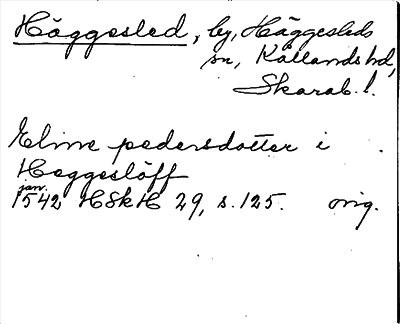 Häggesled, by, Häggesleds
sn, Kållands hd,
Skarab. l.
Eline pedersdotter i
Heggeslöff
jan.
1542 HSkH 29, s. 125. orig.